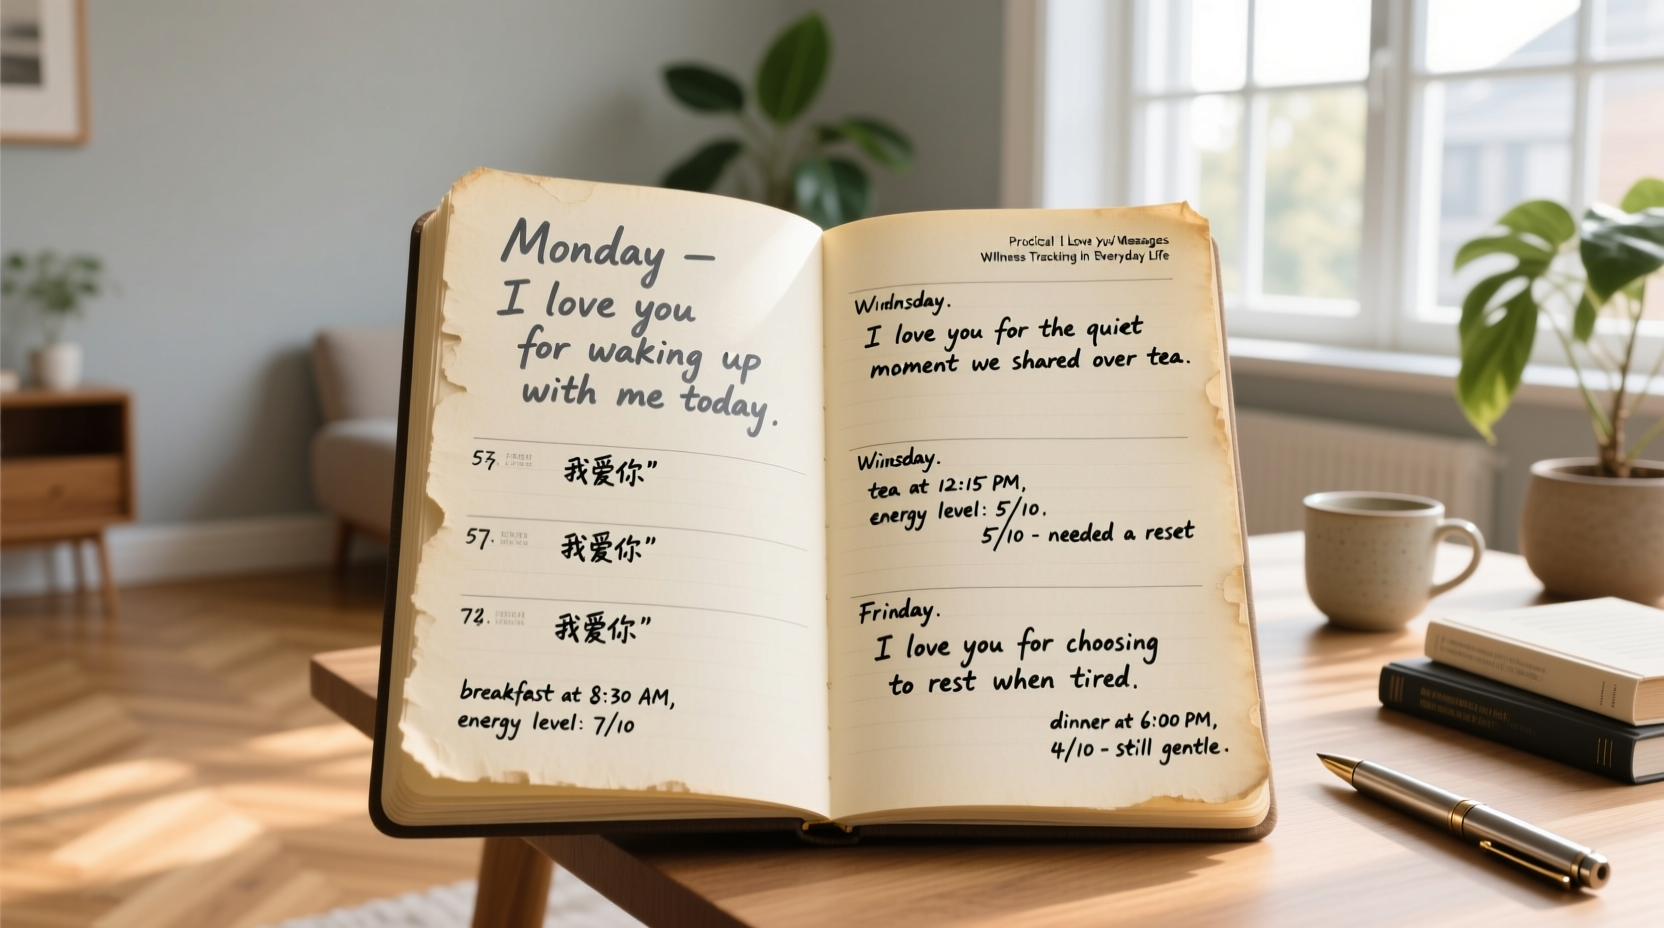 Monday —
I love you
for waking up
with me today.
57. 我爱你”
57. 我爱你”
72. 我爱你”
breakfast at 8:30 AM,
energy level: 7/10
Procical I Love you Messages
Willness Tracking in Everyday Life
Wirdnsday.
I love you for the quiet
moment we shared over tea.
Wiinsday.
tea at 12:15 PM,
energy level: 5/10.
5/10 - needed a reset
Frinday.
I love you for choosing
to rest when tired.
dinner at 6:00 PM,
4/10 - still gentle.